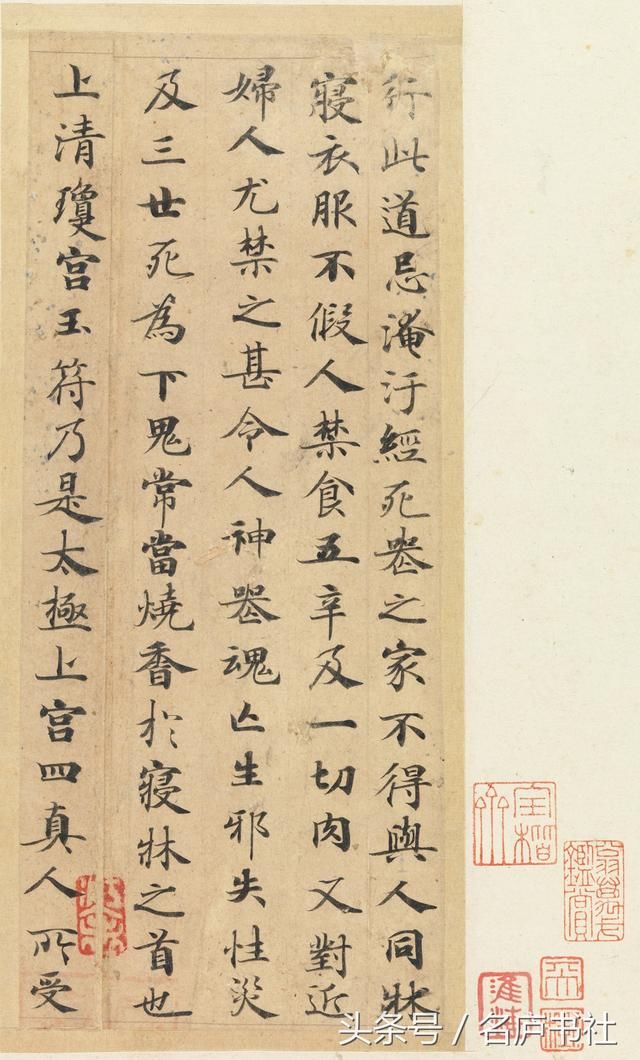 行此道忌淹汙經死䘮之家不得與人同牀
寢衣服不假人禁食五辛及一切肉又對近
婦人尤禁之甚令人神䘮魂亡生邪失性災
及三世死為下鬼常當燒香於寢牀之首也
上清瓊宫玉符乃是太極上宫四真人所受
头条号 / 名庐书社